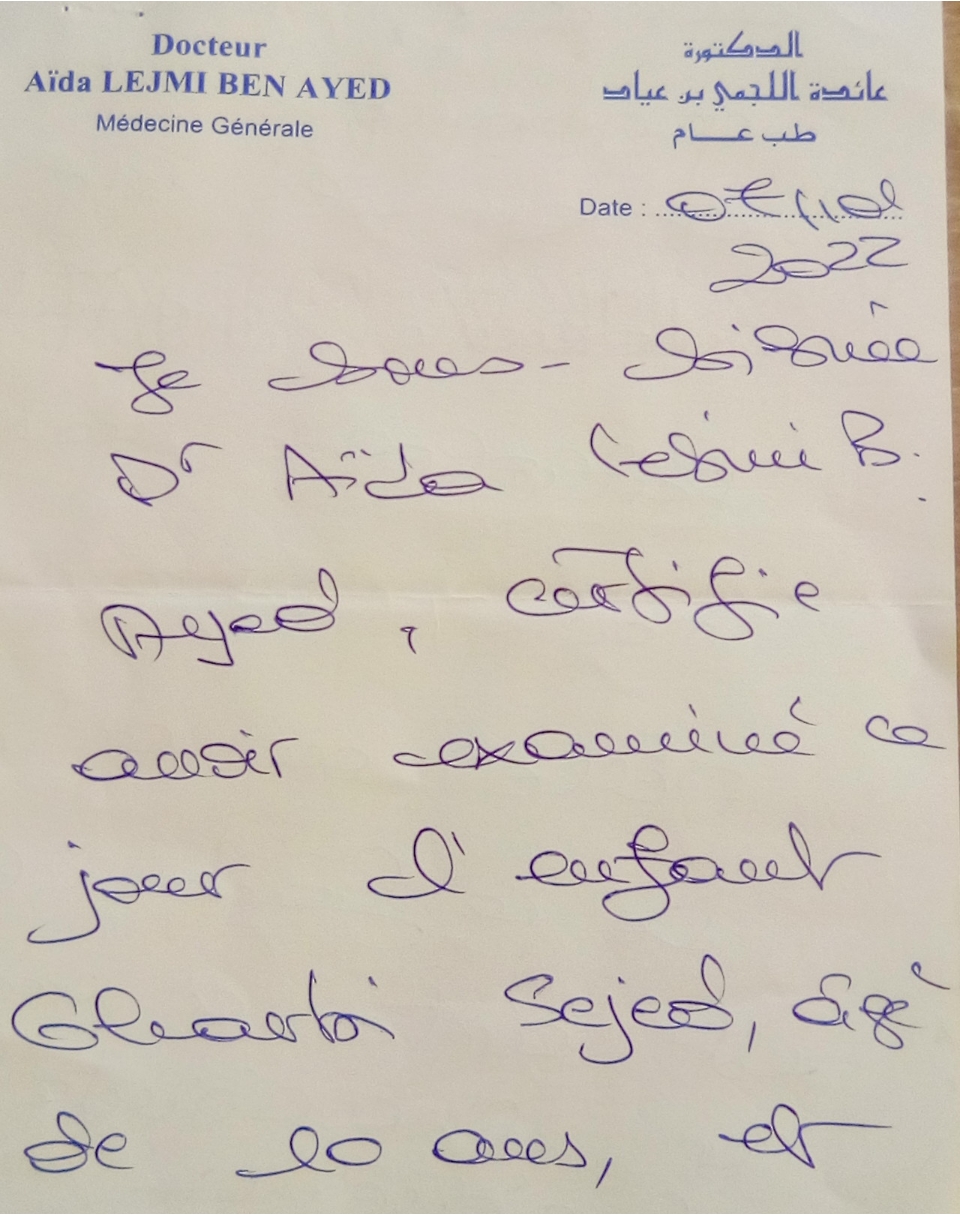 Docteur
Aïda LEJMI BEN AYED
Médecine Générale
الدكتورة
عائدة اللجمي بن عياد
طب عام
Date :
2022
Je sous-signée
Dr Aïda Lejmi B.
Ayed, certifie
avoir examiné ce
jour l'enfant
Gharbi Sejed, âgé
de 10 ans, et